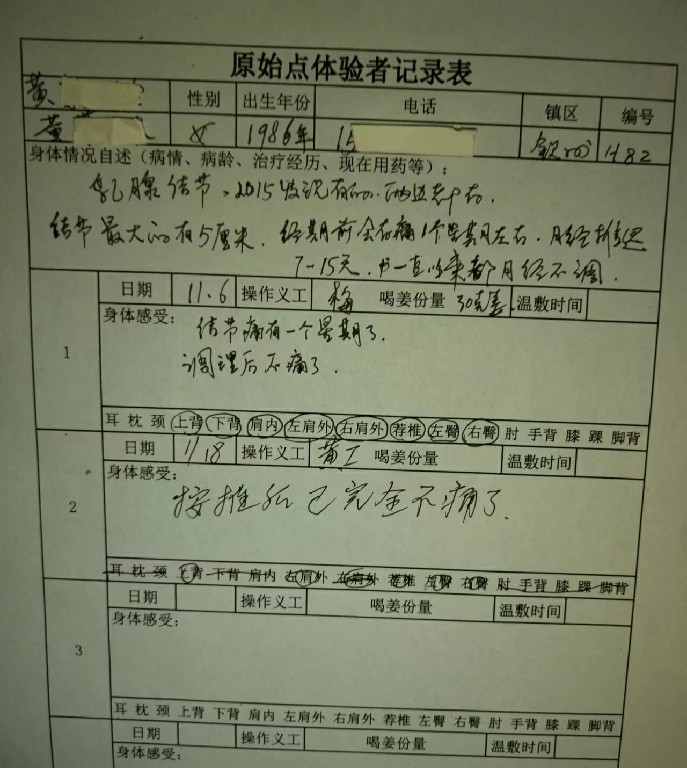 原始点体验者记录表
黄 性别 出生年份 电话 镇区 编号
黄 女 1986年 15 H82
身体情况自述（病情、病龄、治疗经历、现在用药等）：
乳腺结节、2015发现有的、两边都有、
结节最大的有5厘米、经期前会有痛1个星期左右、月经推迟
7-15天、一直以来都月经不调、
日期 11.6 操作义工 梅 喝姜份量 30克姜 温敷时间
1
身体感受：
结节痛有一个星期了、
调理后不痛了、
耳 枕 颈 上背 下背 肩内 左肩外 右肩外 荐椎 左臀 右臀 肘 手背 膝 踝 脚背
日期 11.18 操作义工 黄工 喝姜份量 温敷时间
2
身体感受：
按推后已完全不痛了、
耳 枕 颈 上背 下背 肩内 左肩外 右肩外 荐椎 左臀 右臀 肘 手背 膝 踝 脚背
日期 操作义工 喝姜份量 温敷时间
3
身体感受：
耳 枕 颈 上背 下背 肩内 左肩外 右肩外 荐椎 左臀 右臀 肘 手背 膝 踝 脚背
日期 操作义工 喝姜份量 温敷时间
身体感受：